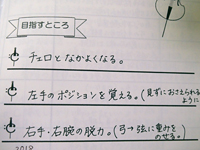 目指すところ
チェロとなかよくなる。
左手のポジションを覚える。(見ずにおさえられるように
右手・右腕の脱力。(弓→弦に重みをのせる。)
2018